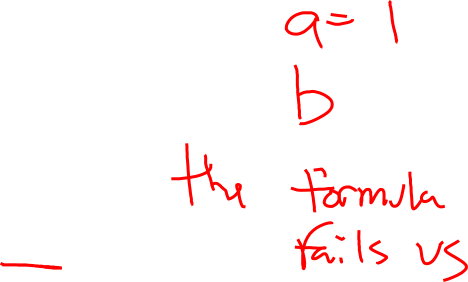 a = 1
b
the formula
fails us